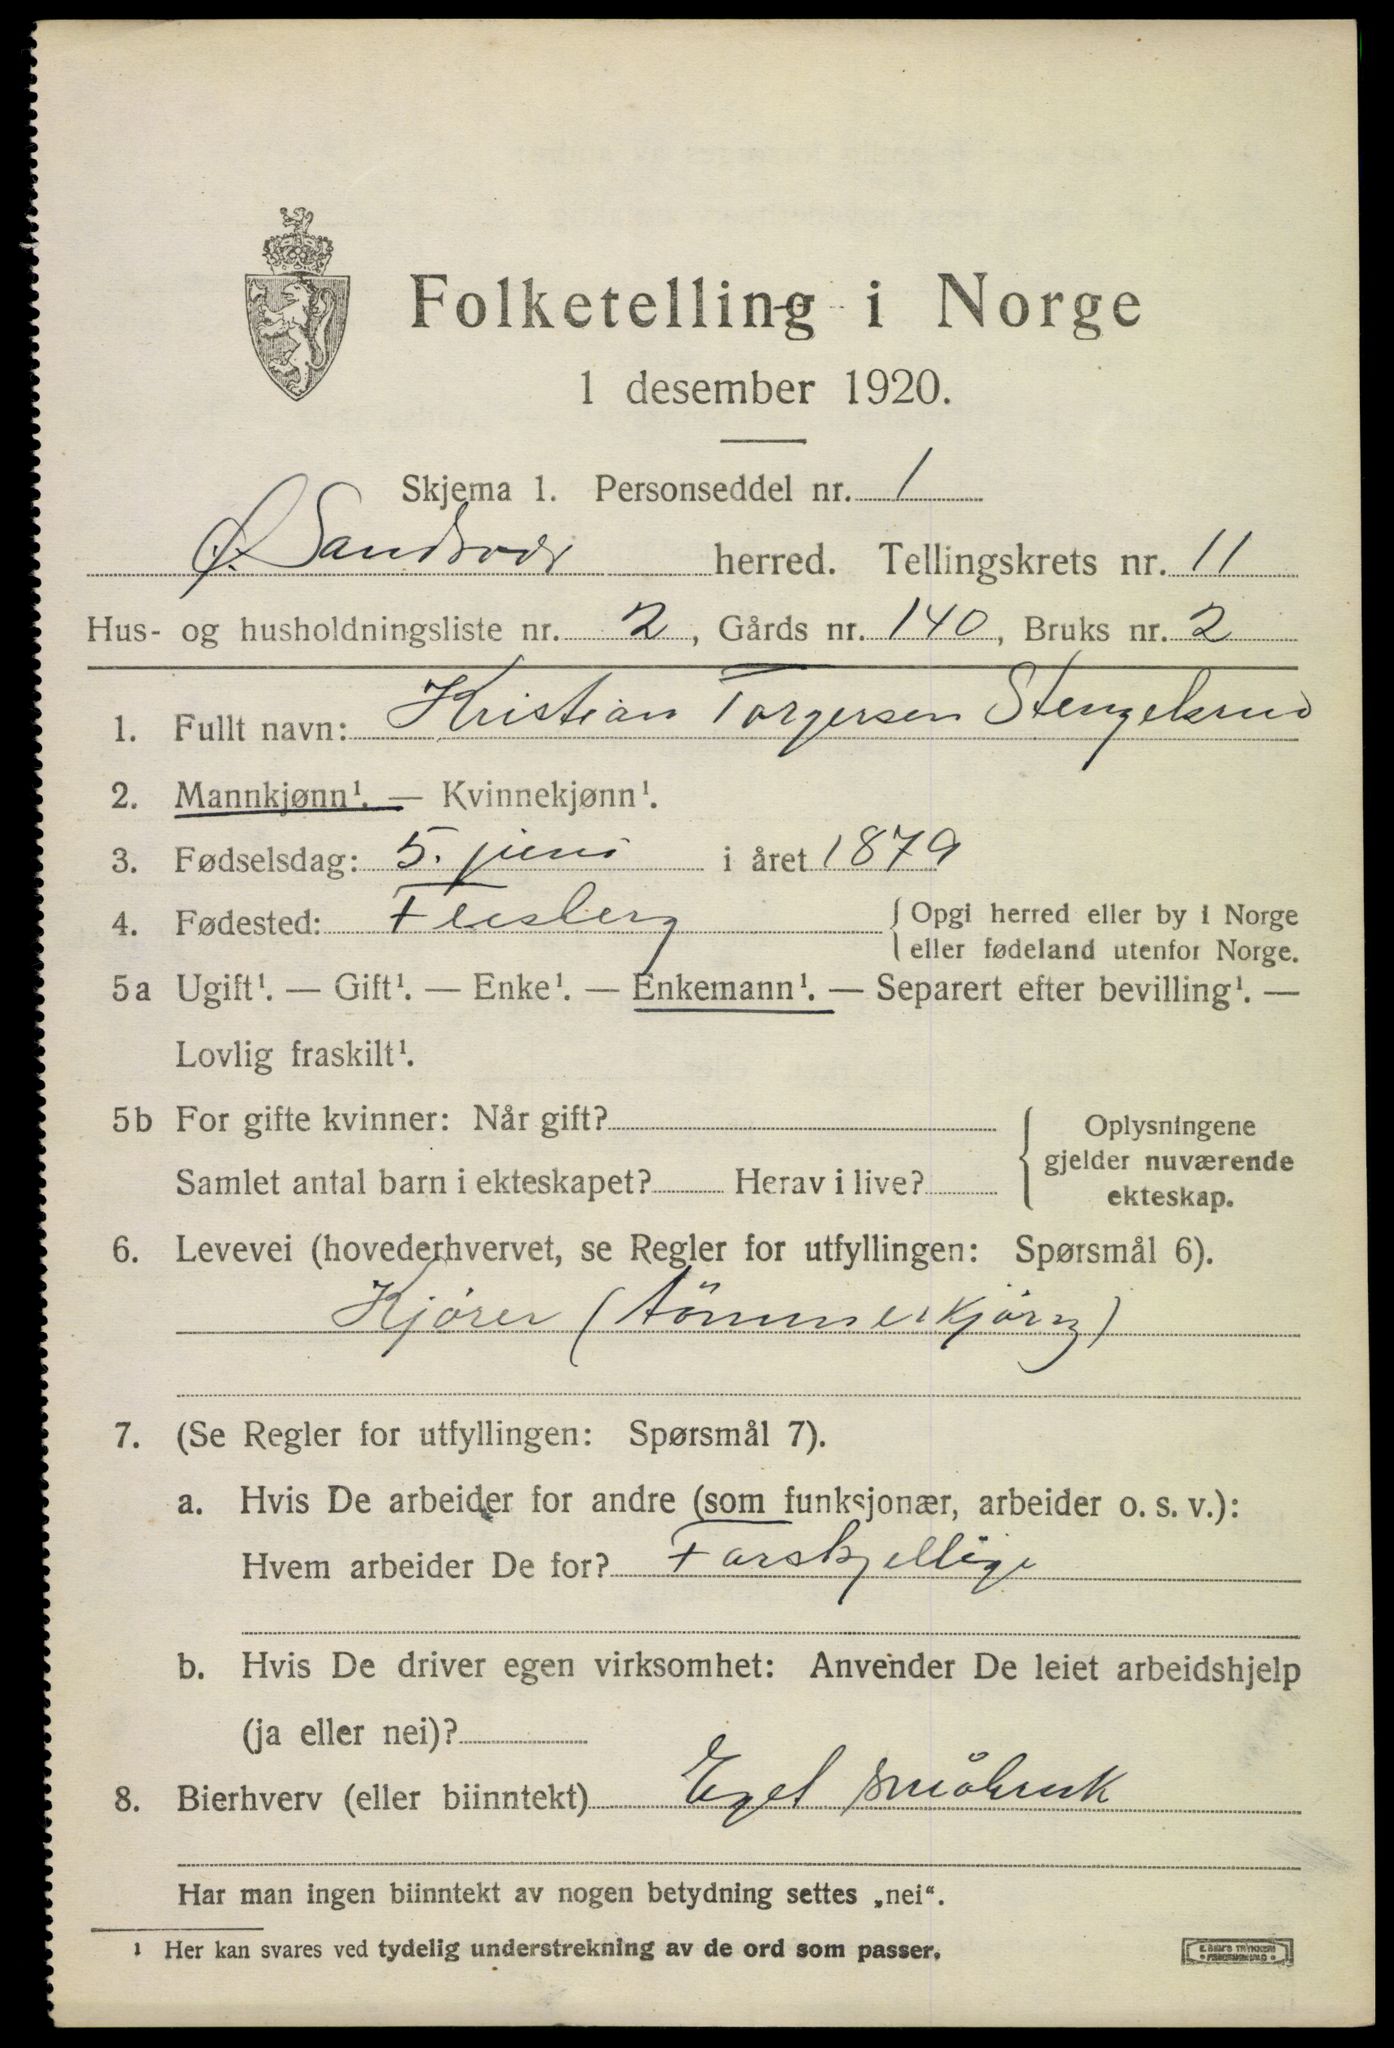 Folketelling i Norge
1 desember 1920.
Skjema 1. Personseddel nr. 1
Ø. Sandsvær herred. Tellingskrets nr. 11
Hus- og husholdningsliste nr. 2, Gårds nr. 140, Bruks nr. 2
1. Fullt navn: Kristian Torgersen Stengelsrud
2. Mannkjønn¹. — Kvinnekjønn¹.
3. Fødselsdag: 5. juni i året 1879
4. Fødested: Flesberg { Opgi herred eller by i Norge
eller fødeland utenfor Norge.
5a Ugift¹. — Gift¹. — Enke¹. — Enkemann¹. — Separert efter bevilling¹. —
Lovlig fraskilt¹.
5b For gifte kvinner: Når gift?
Samlet antal barn i ekteskapet? Herav i live?
{ Oplysningene
gjelder nuværende
ekteskap.
6. Levevei (hovederhvervet, se Regler for utfyllingen: Spørsmål 6).
Kjører (tömmerkjöring)
7. (Se Regler for utfyllingen: Spørsmål 7).
a. Hvis De arbeider for andre (som funksjonær, arbeider o. s. v.):
Hvem arbeider De for? Forskjellige
b. Hvis De driver egen virksomhet: Anvender De leiet arbeidshjelp
(ja eller nei)?
8. Bierhverv (eller biinntekt) Eget småbruk
Har man ingen biinntekt av nogen betydning settes „nei“.
¹ Her kan svares ved tydelig understrekning av de ord som passer.